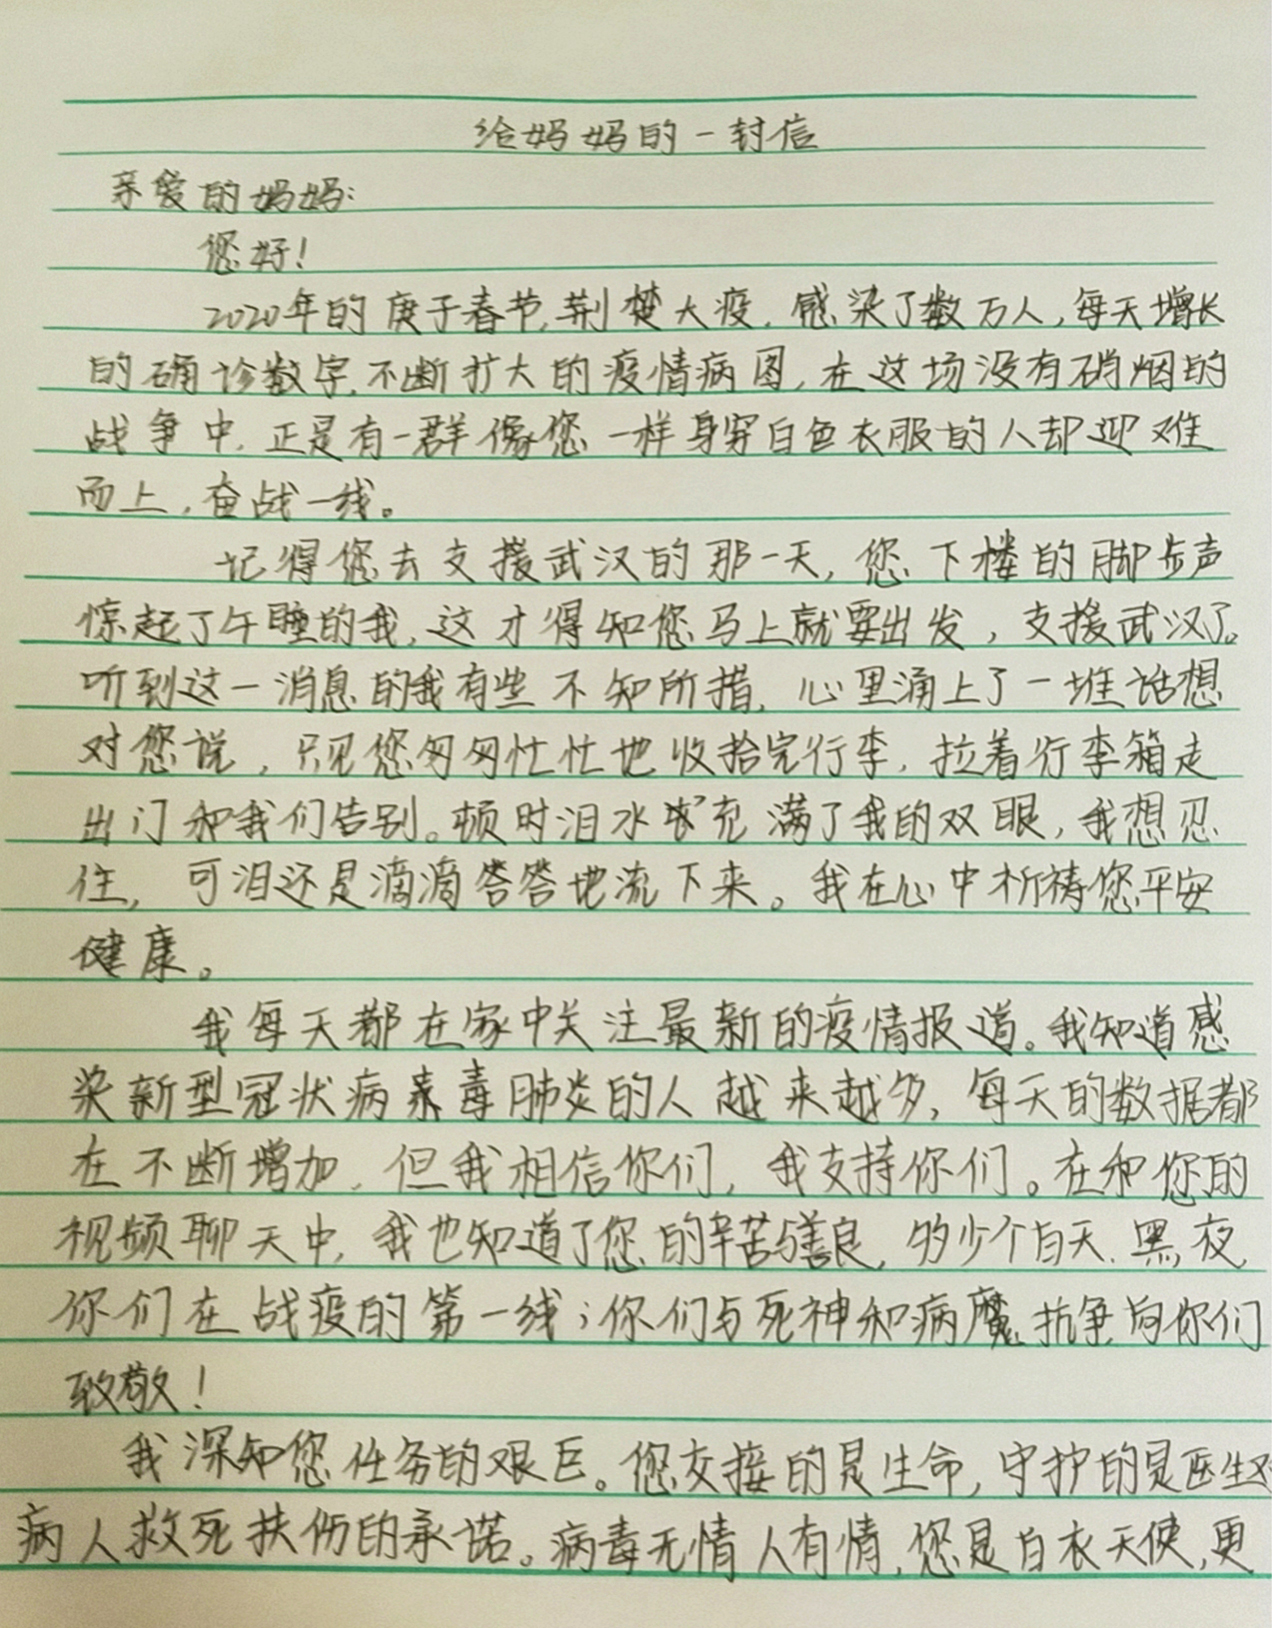 给妈妈的一封信
亲爱的妈妈:
您好!
2020年的庚子春节,荆楚大疫,感染了数万人,每天增长
的确诊数字,不断扩大的疫情病图,在这场没有硝烟的
战争中,正是有一群像您一样身穿白色衣服的人却迎难
而上,奋战一线。
记得您去支援武汉的那一天,您下楼的脚步声
惊起了午睡的我,这才得知您马上就要出发,支援武汉了。
听到这一消息的我有些不知所措,心里涌上了一堆话想
对您说,只见您匆匆忙忙地收拾完行李,拉着行李箱走
出门和我们告别。顿时泪水充满了我的双眼,我想忍
住,可泪还是滴滴答答地流下来。我在心中祈祷您平安
健康。
我每天都在家中关注最新的疫情报道。我知道感
染新型冠状病毒肺炎的人越来越多,每天的数据都
在不断增加,但我相信你们,我支持你们。在和您的
视频聊天中,我也知道了您的辛苦与善良,多少个白天、黑夜,
你们在战疫的第一线;你们与死神和病魔抗争,向你们
致敬!
我深知您任务的艰巨。您交接的是生命,守护的是医生对
病人救死扶伤的承诺。病毒无情人有情,您是白衣天使,更